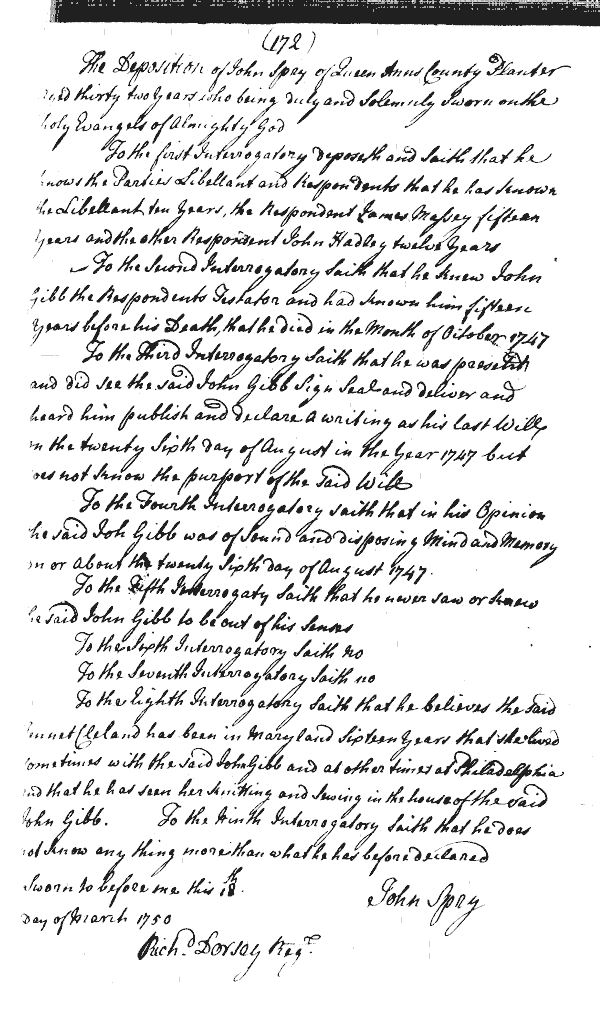 (172)
The Deposition of John Spry of Queen Anns County Planter
aged thirty two Years who being duly and Solemnly Sworn on the
holy Evangels of Almighty God
To the first Interrogatory deposeth and Saith that he
knows the Parties Libellant and Respondents that he has known
the Libellant ten Years, the Respondent James Massey fifteen
Years and the other Respondent John Hadley twelve Years
To the Second Interrogatory Saith that he knew John
Gibb the Respondents Testator and had known him fifteen
Years before his Death, that he died in the Month of October 1747
To the Third Interrogatory Saith that he was present
and did see the said John Gibb Sign Seal and deliver and
heard him publish and declare a writing as his last Will
on the twenty Sixth day of August in the Year 1747 but
does not know the purport of the said Will
To the Fourth Interrogatory saith that in his Opinion
the said Joh Gibb was of Sound and disposing Mind and Memory
on or about the twenty Sixth day of August 1747.
To the Fifth Interrogaty Saith that he never saw or knew
he said John Gibb to be out of his Senses
To the Sixth Interrogatory Saith no
To the Seventh Interrogatory Saith no
To the Eighth Interrogatory Saith that he believes the said
nnet Cleland has been in Maryland Sixteen Years that she lived
Sometimes with the said John Gibb and at other times at Philadelphia
and that he has seen her Knitting and Sewing in the house of the said
John Gibb. To the Ninth Interrogatory Saith that he does
not Know any thing more than what he has before declared
Sworn to before me this 18th. John Spry
Day of March 1750
Richd. Dorsey Regr.